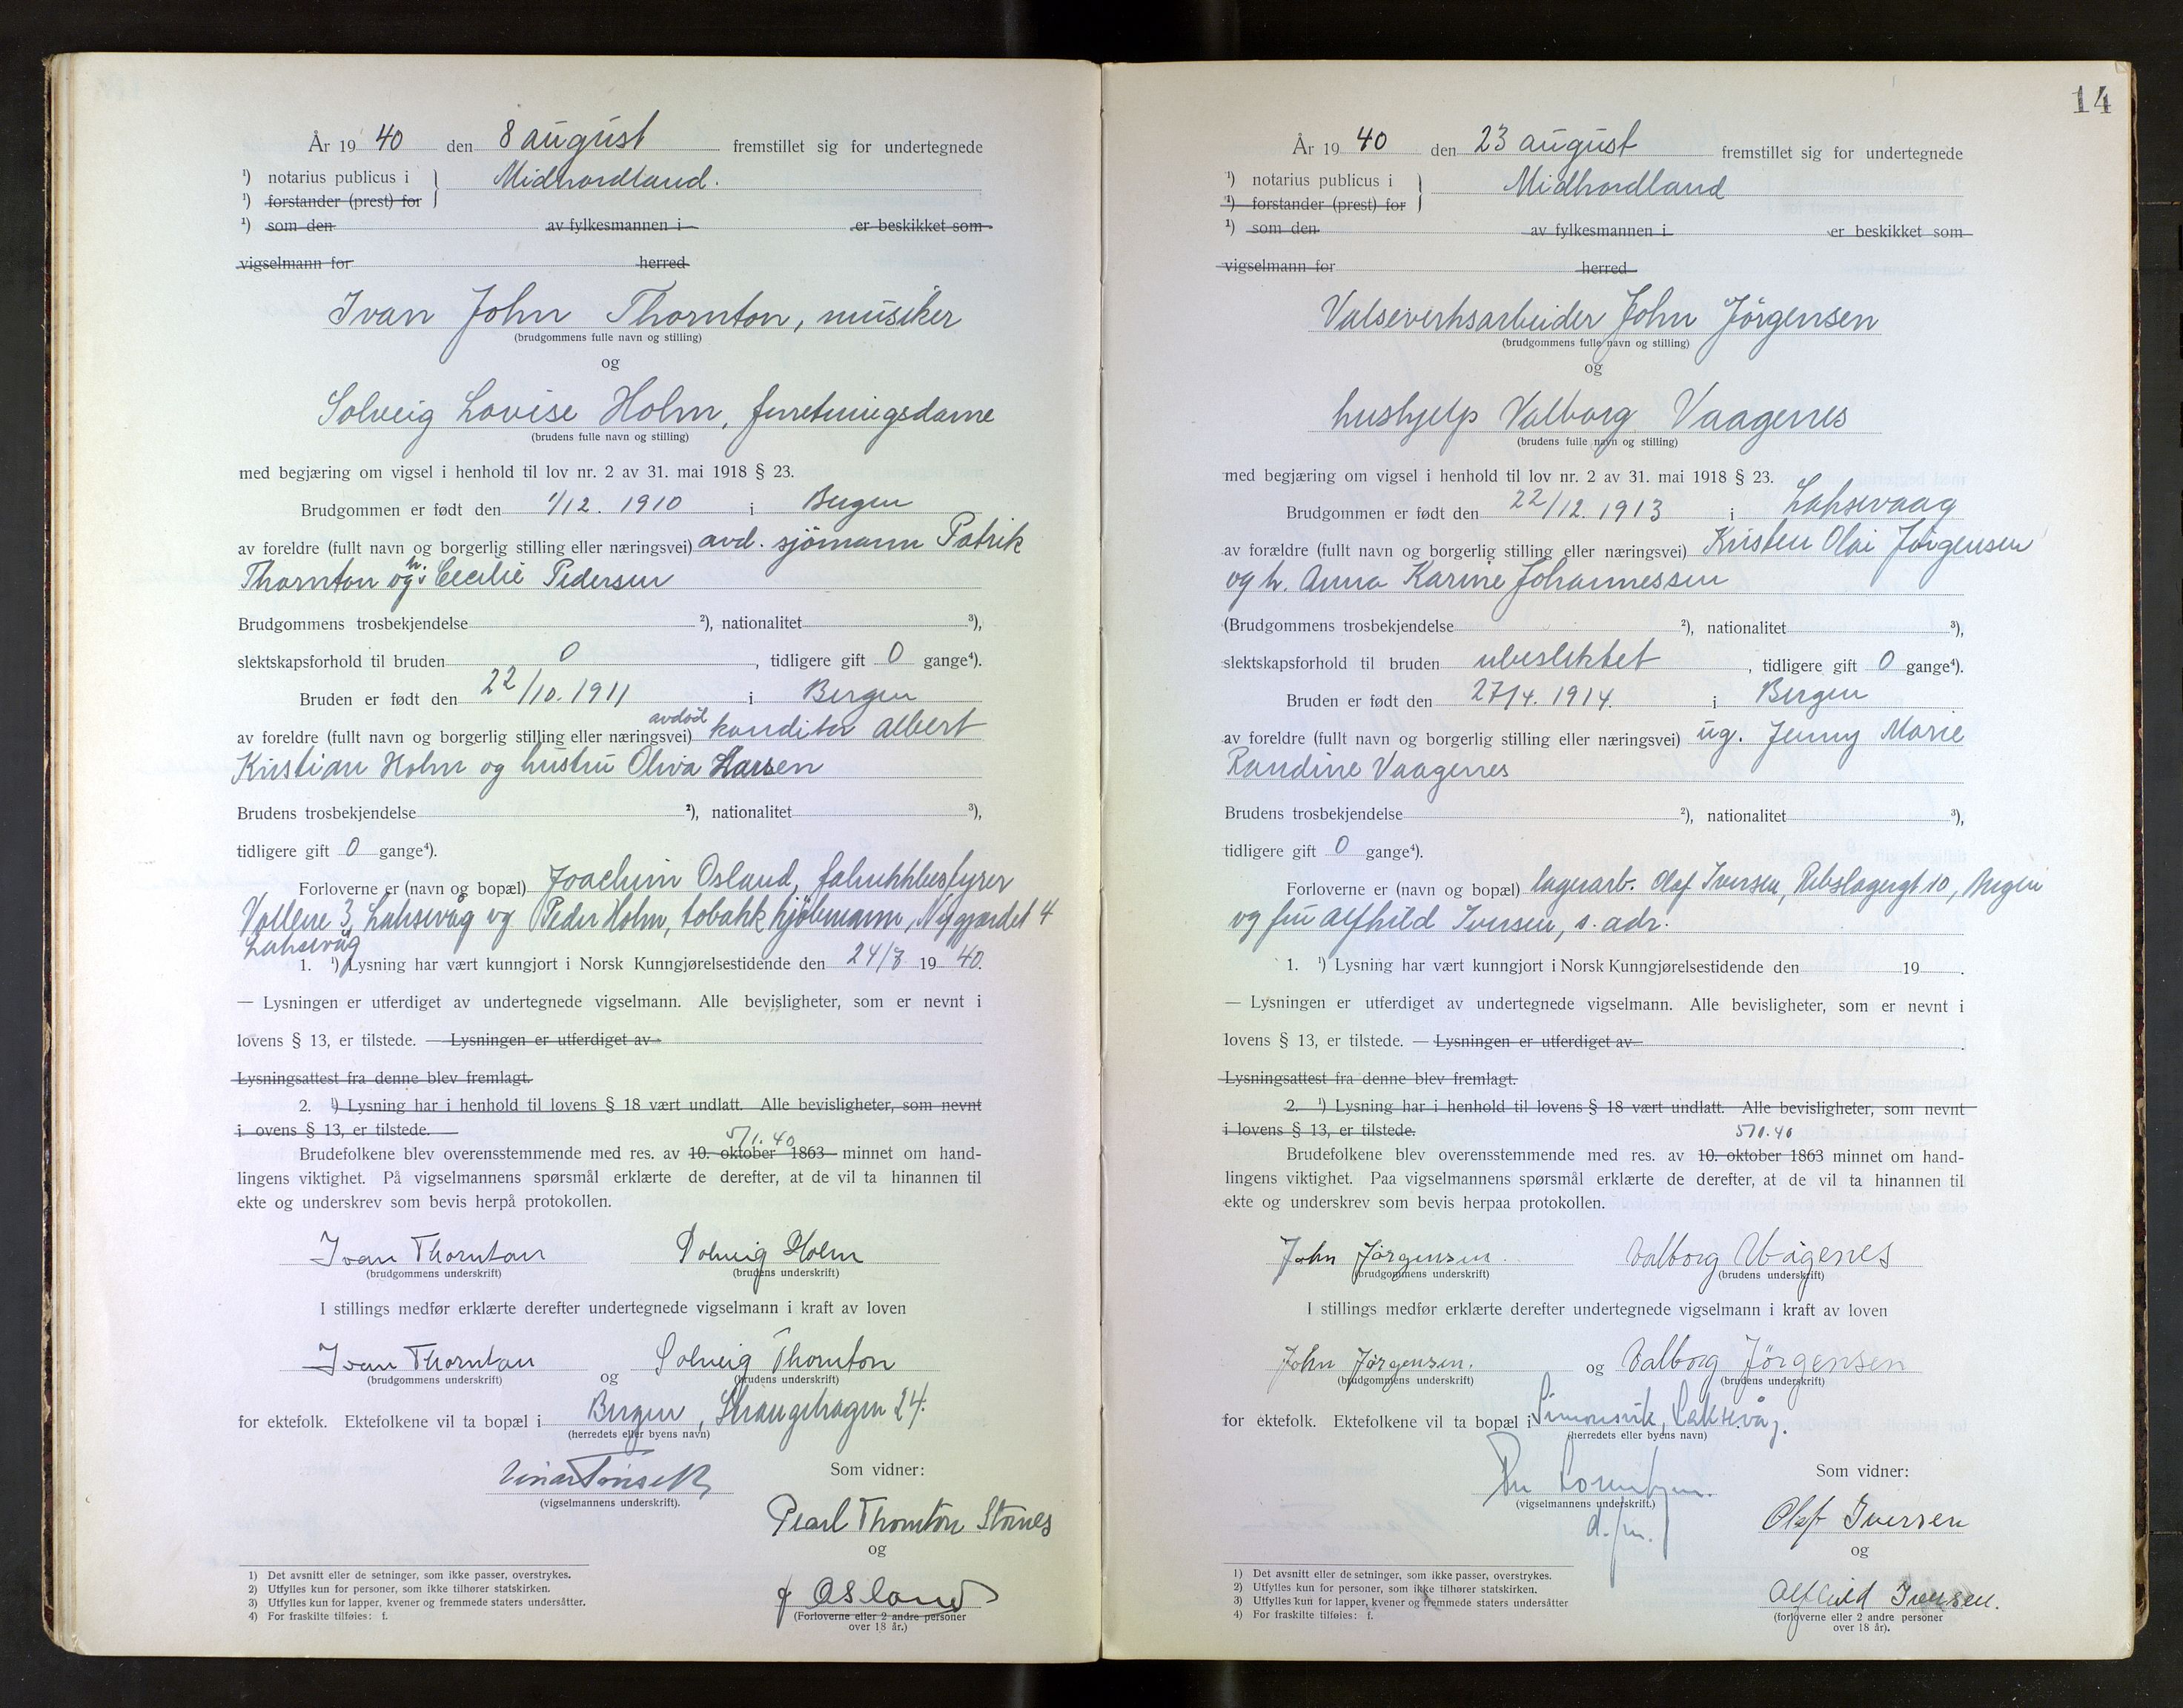 År 1940 den 8 august fremstillet sig for undertegnede
¹) notarius publicus i } Midhordland.
¹) forstander (prest) for
¹) som den av fylkesmannen i er beskikket som
vigselmann for herred
Ivan John Thornton, musiker
(brudgommens fulle navn og stilling)
og
Solveig Lovise Holm, forretningsdame
(brudens fulle navn og stilling)
med begjæring om vigsel i henhold til lov nr. 2 av 31. mai 1918 § 23.
Brudgommen er født den 1/12. 1910 i Bergen
av foreldre (fullt navn og borgerlig stilling eller næringsvei) avd. sjömann Patrik
Thornton og h. Cecilie Pedersen
Brudgommens trosbekjendelse ²), nationalitet ³),
slektskapsforhold til bruden 0, tidligere gift 0 gange⁴).
Bruden er født den 22/10. 1911 i Bergen
av foreldre (fullt navn og borgerlig stilling eller næringsvei) avdöd konditor Albert
Kristian Holm og hustru Oliva Larsen
Brudens trosbekjendelse ²), nationalitet ³),
tidligere gift 0 gange⁴).
Forloverne er (navn og bopæl) Joachim Osland, fabrikkbestyrer
Vollene 3, Laksevåg og Peder Holm, tobakkkjöbmann, Nygjærdet 4
Laksevåg
1. ¹) Lysning har vært kunngjort i Norsk Kunngjørelsestidende den 24/7 1940.
— Lysningen er utferdiget av undertegnede vigselmann. Alle bevisligheter, som er nevnt i
lovens § 13, er tilstede. — Lysningen er utferdiget av
Lysningsattest fra denne blev fremlagt.
2. ¹) Lysning har i henhold til lovens § 18 vært undlatt. Alle bevisligheter, som nevnt
i ovens § 13, er tilstede.
5/1.40
Brudefolkene blev overensstemmende med res. av 10. oktober 1863 minnet om hand-
lingens viktighet. På vigselmannens spørsmål erklærte de derefter, at de vil ta hinannen til
ekte og underskrev som bevis herpå protokollen.
Ivan Thornton Solveig Holm
(brudgommens underskrift) (brudens underskrift)
I stillings medfør erklærte derefter undertegnede vigselmann i kraft av loven
Ivan Thornton og Solveig Thornton
(brudgommens underskrift) (brudens underskrift)
for ektefolk. Ektefolkene vil ta bopæl i Bergen, Strangehagen 24.
(herredets eller byens navn)
(vigselmannens underskrift).
Som vidner:
Pearl Thornton Stornes
og
J Osland
(Forloverne eller 2 andre personer
over 18 år.)
1) Det avsnitt eller de setninger, som ikke passer, overstrykes.
2) Utfylles kun for personer, som ikke tilhører statskirken.
3) Utfylles kun for lapper, kvener og fremmede staters undersåtter.
4) For fraskilte tilføies: f.
14
År 1940 den 23 august fremstillet sig for undertegnede
¹) notarius publicus i } Midhordland
¹) forstander (prest) for
¹) som den av fylkesmannen i er beskikket som
vigselmann for herred
Valseverksarbeider John Jörgensen
(brudgommens fulle navn og stilling)
og
hushjelp Valborg Vaagenes
(brudens fulle navn og stilling)
med begjæring om vigsel i henhold til lov nr. 2 av 31. mai 1918 § 23.
Brudgommen er født den 22/12. 1913 i Laksevaag
av forældre (fullt navn og borgerlig stilling eller næringsvei) Kristen Olai Jörgensen
og h. Anna Karine Johannessen
(Brudgommens trosbekjendelse ²), nationalitet ³),
slektskapsforhold til bruden ubeslektet, tidligere gift 0 gange⁴).
Bruden er født den 27/4. 1914. i Bergen
av foreldre (fullt navn og borgerlig stilling eller næringsvei) ug. Jenny Marie
Randine Vaagenes
Brudens trosbekjendelse ²), nationalitet ³),
tidligere gift 0 gange⁴).
Forloverne er (navn og bopæl) lagerarb. Olaf Iversen, Rebslagergt 10, Bergen
og fru Alfhild Iversen, s. adr.
1. ¹) Lysning har vært kunngjort i Norsk Kunngjørelsestidende den 19 .
— Lysningen er utferdiget av undertegnede vigselmann. Alle bevisligheter, som er nevnt i
lovens § 13, er tilstede. — Lysningen er utferdiget av .
Lysningsattest fra denne blev fremlagt.
2. ¹) Lysning har i henhold til lovens § 18 vært undlatt. Alle bevisligheter, som nevnt
i lovens § 13, er tilstede.
5/1.40
Brudefolkene blev overensstemmende med res. av 10. oktober 1863 minnet om hand-
lingens viktighet. Paa vigselmannens spørsmål erklærte de derefter, at de vil ta hinannen til
ekte og underskrev som bevis herpaa protokollen.
John Jørgensen. Valborg Vågenes
(brudgommens underskrift) (brudens underskrift)
I stillings medfør erklærte derefter undertegnede vigselmann i kraft av loven
John Jørgensen. og Valborg Jörgensen
(brudgommens underskrift) (brudens underskrift)
for ektefolk. Ektefolkene vil ta bopæl i Simonsvik, Laksevåg.
(herredets eller byens navn)
(vigselmannens underskrift.)
d.fm.
Som vidner:
Olaf Iversen
og
Alfhild Iversen.
(forloverne eller 2 andre personer
over 18 år).
1) Det avsnitt eller de setninger, som ikke passer, overstrykes.
2) Utfylles kun for personer, som ikke tilhører statskirken.
3) Utfylles kun for lapper, kvener og fremmede staters undersåtter
4) For fraskilte tilføies: f.